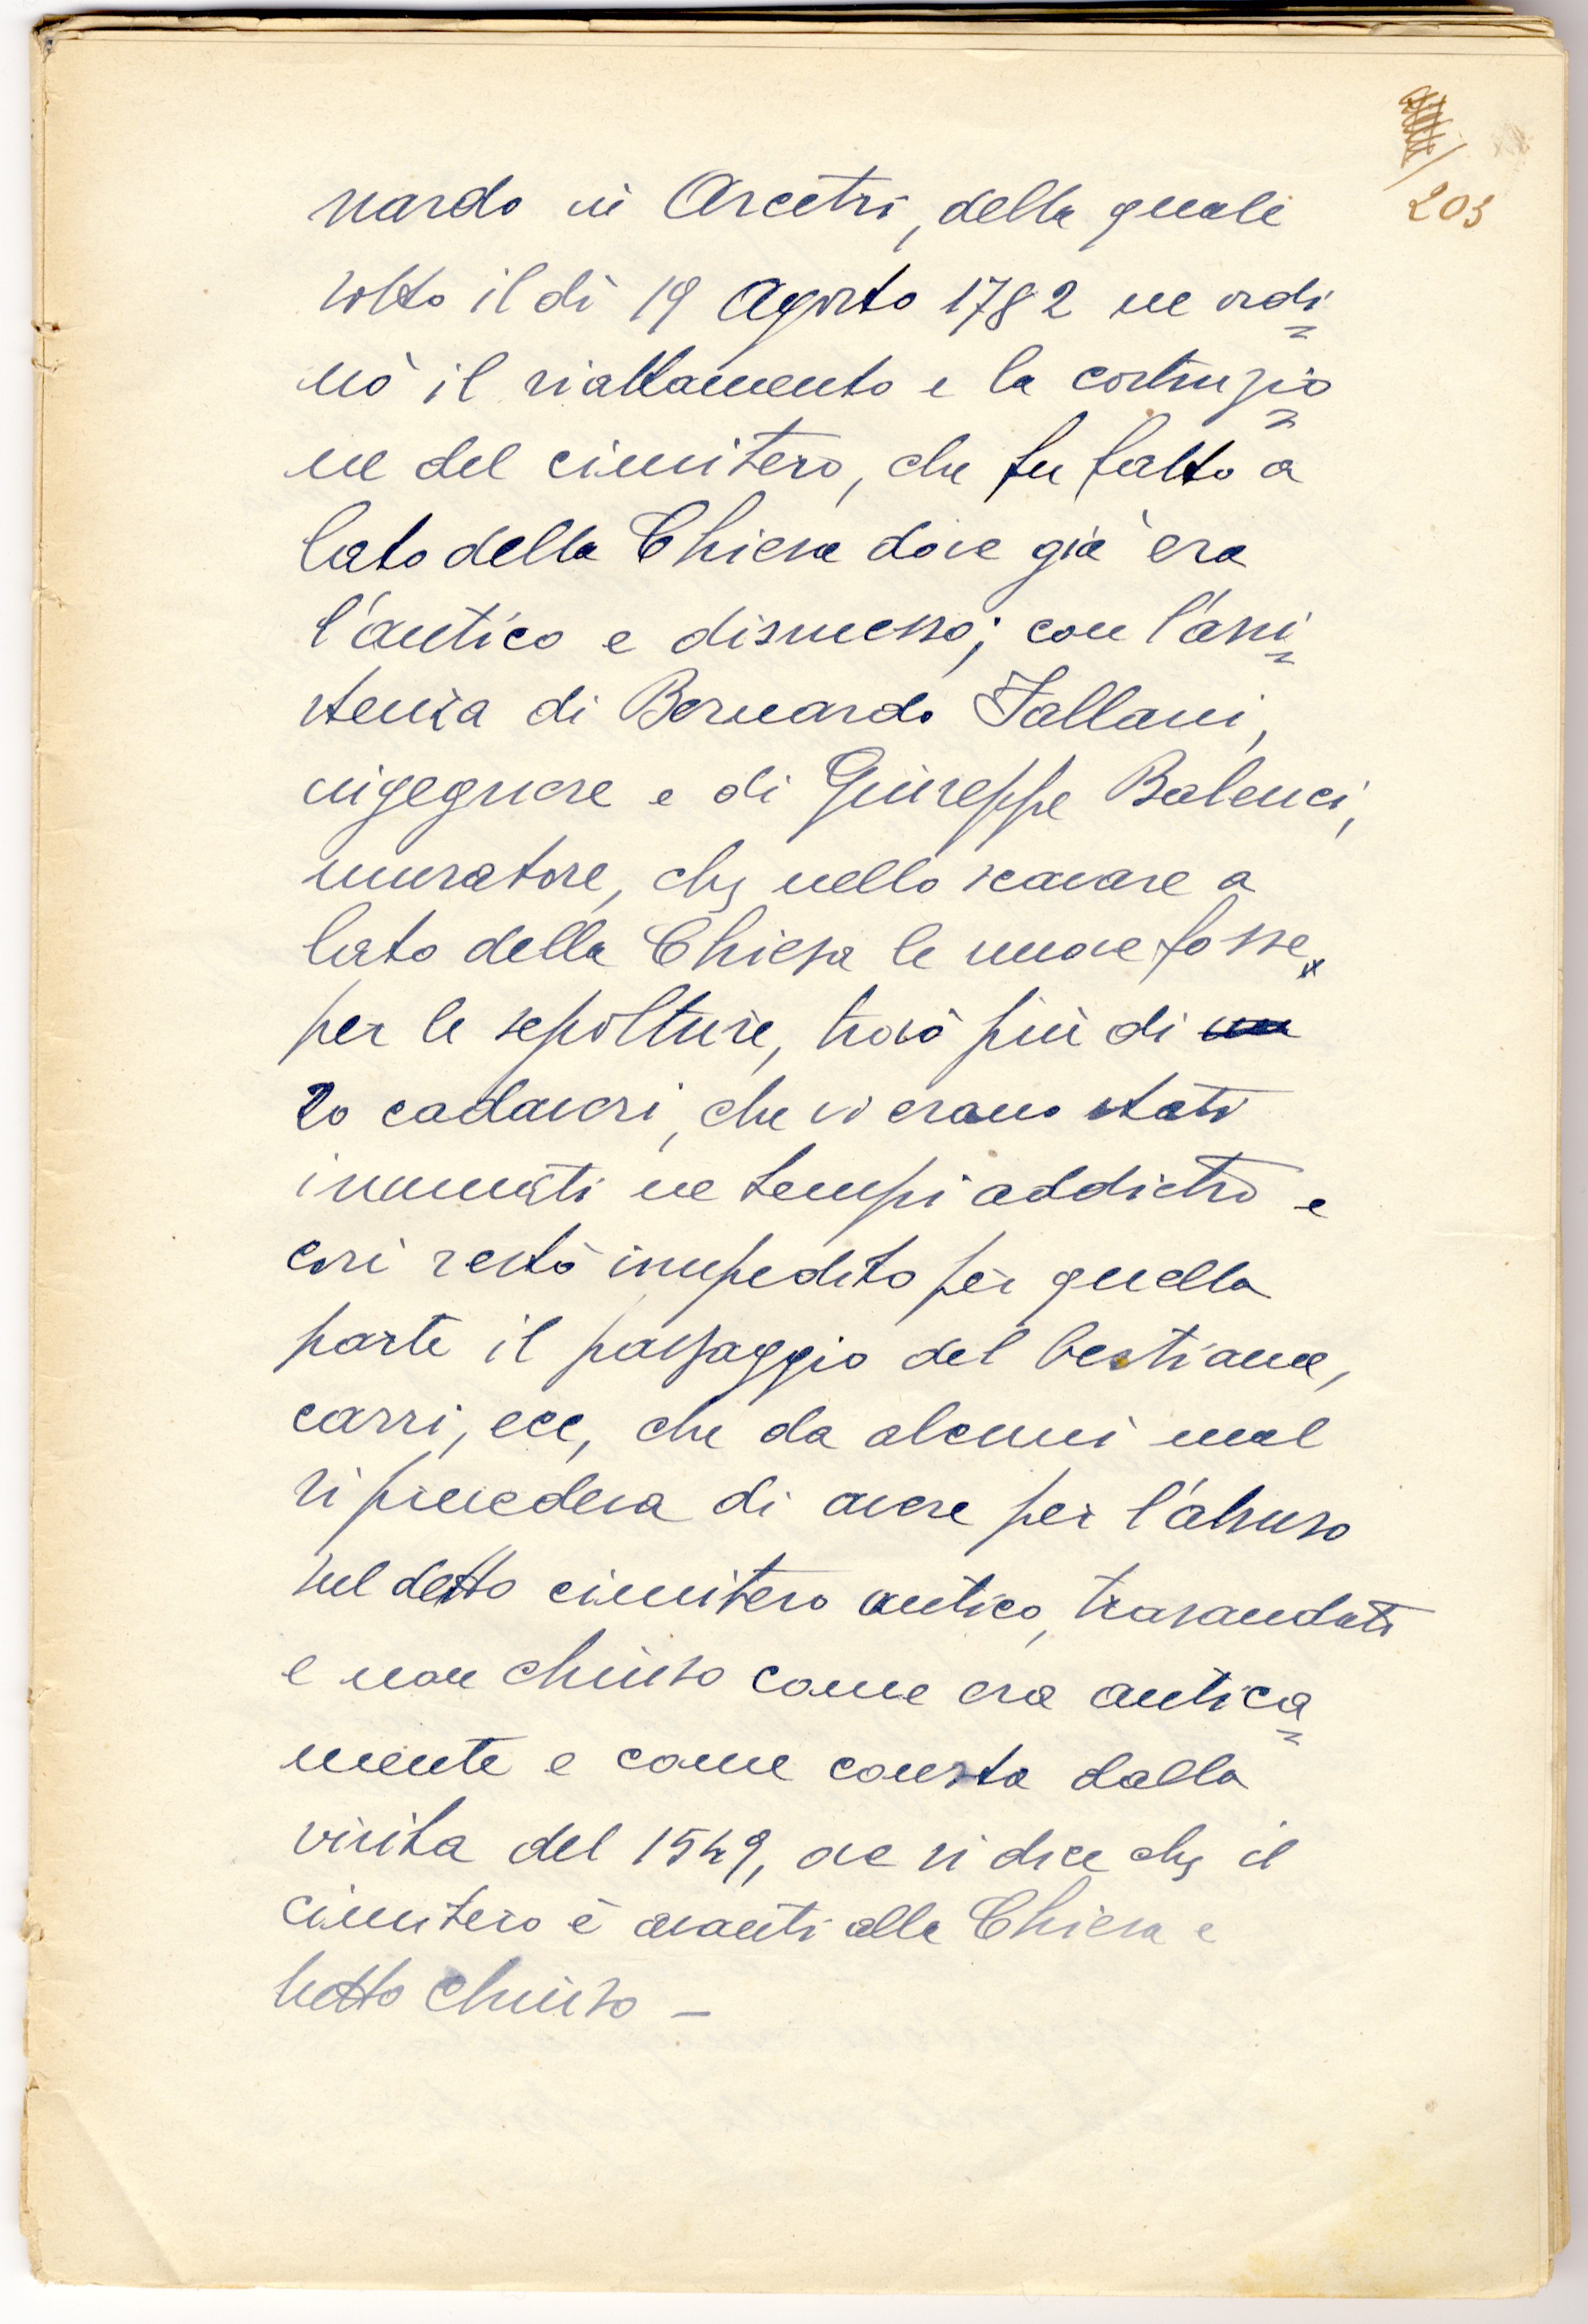 203
nardo in Arcetri, della quale
sotto il dì 19 Agosto 1782 ne ordi=
nò il riattamento e la costruzio=
ne del cimitero, che fu fatto a
lato della Chiesa dove già era
l'antico e dismesso; con l'assi=
stenza di Bernardo Fallani,
ingegnere e di Giuseppe Balenci,
muratore, che nello scavare a
lato della Chiesa le nuove fosse
per le sepolture, trovò più di un
20 cadaveri, che vi erano stati
inumati ne tempi addietro e
così restò impedito per quella
parte il passaggio del bestiame,
carri, ecc, che da alcuni mal
si prendeva di avere per l'abuso
sul detto cimitero antico, trasandato
e non chiuso come era antica=
mente e come consta dalla
visita del 1549, ove si dice che il
cimitero è avanti alla Chiesa e
tutto chiuso –